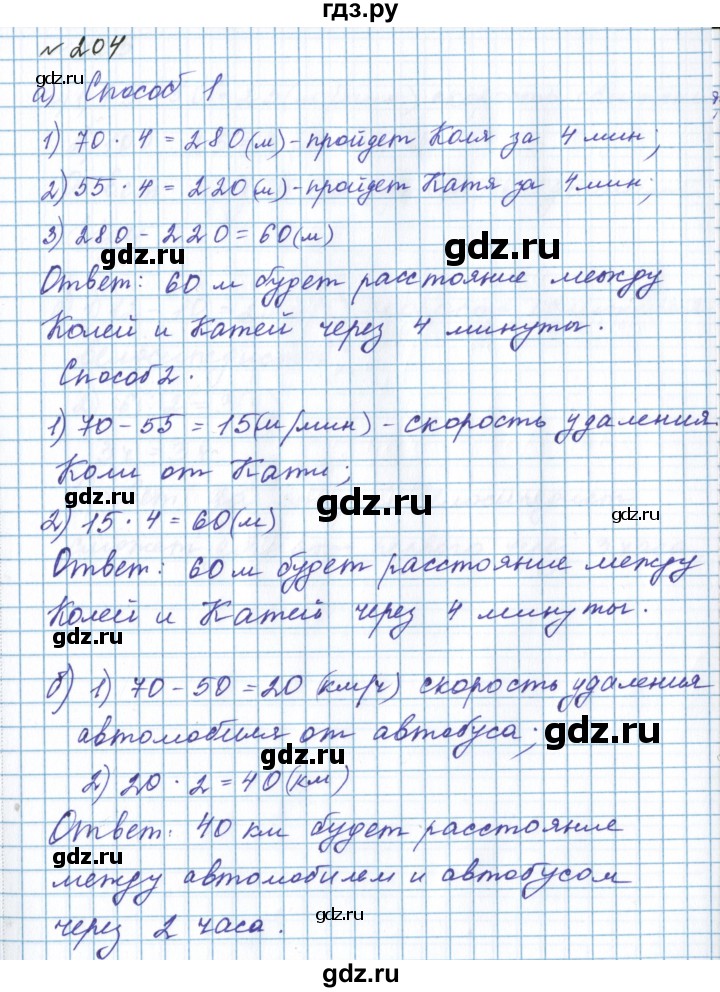 гдз.ру
№ 204
gdz.ru
а) Способ 1
1) 70 · 4 = 280 (м) - пройдет Коля за 4 мин;
gdz.ru
gdz.ru
2) 55 · 4 = 220 (м) - пройдет Катя за 4 мин;
3) 280 - 220 = 60 (м)
gdz.ru
gdz.ru
Ответ: 60 м будет расстояние между
Колей и Катей через 4 минуты.
gdz.ru
Способ 2.
1) 70 - 55 = 15 (м/мин) - скорость удаления
Коли от Кати;
gdz.ru
gdz.ru
gdz.ru
2) 15 · 4 = 60 (м)
Ответ: 60 м будет расстояние между
Колей и Катей через 4 минуты.
gdz.ru
б) 1) 70 - 50 = 20 (км/ч) скорость удаления
автомобиля от автобуса;
gdz.ru
gdz.ru
2) 20 · 2 = 40 (км)
Ответ: 40 км будет расстояние
gdz.ru
между автомобилем и автобусом
через 2 часа.
gdz.ru
gdz.ru